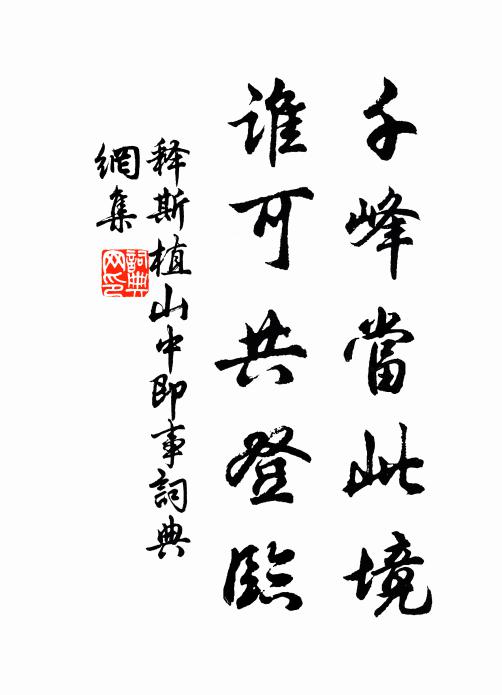 千峰當此境
誰可共登臨
释斯植山中即事詞典
網集
詞典网印